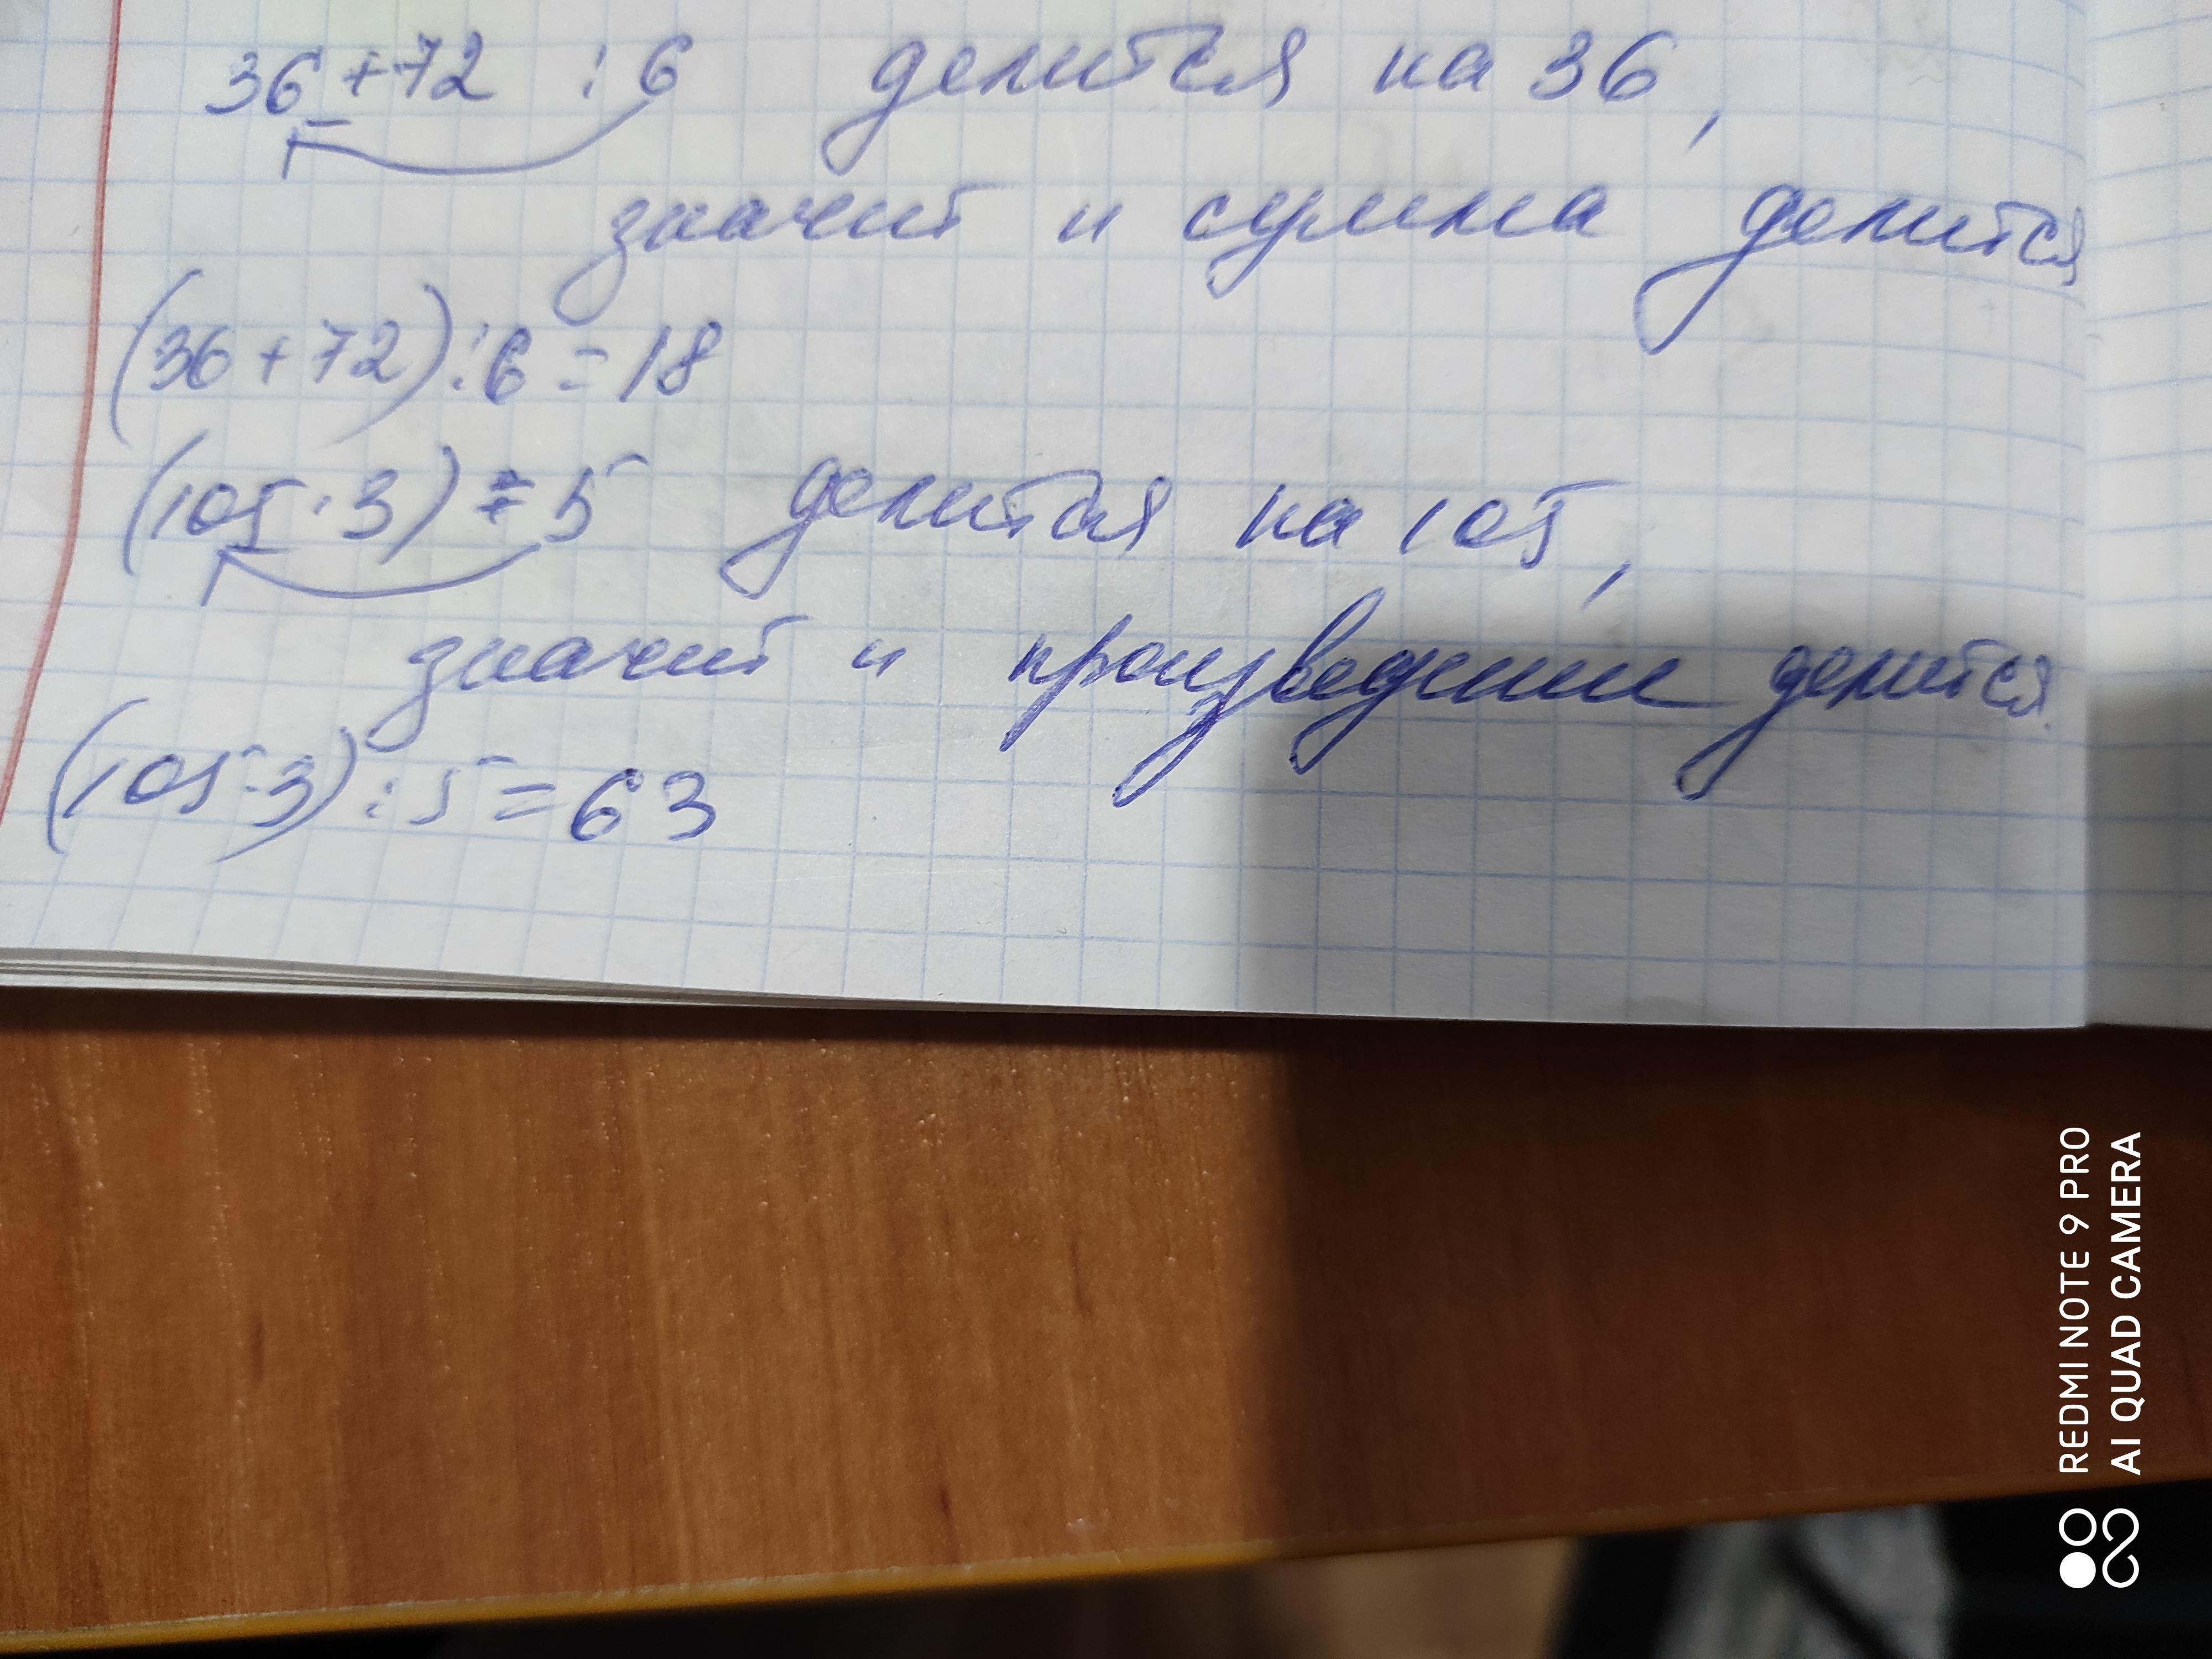 36+72 : 6 делится на 36,
значит и сумма делится
(36+72):6=18
(105·3) : 5 делится на 105,
значит и произведение делится
(105·3):5=63
REDMI NOTE 9 PRO
AI QUAD CAMERA